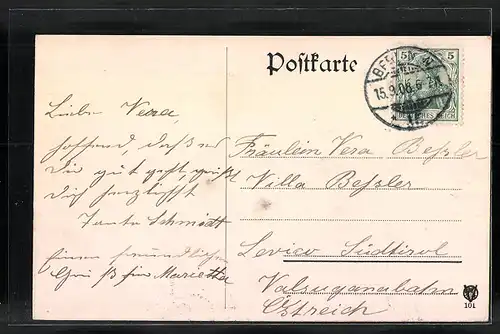 Postkarte
BERLIN W
15.9.06.5
5 5
DEUTSCHES REICH
Liebe Vera,
hoffend, daß es
Dir gut geht, grüßt
Dich herzlichst
Tante Schmidt
Einen freundlichen
Gruß für Marietta
Fräulein Vera Beßler
Villa Beßler
Levico Südtirol
Valsuganabahn
Östreich
101